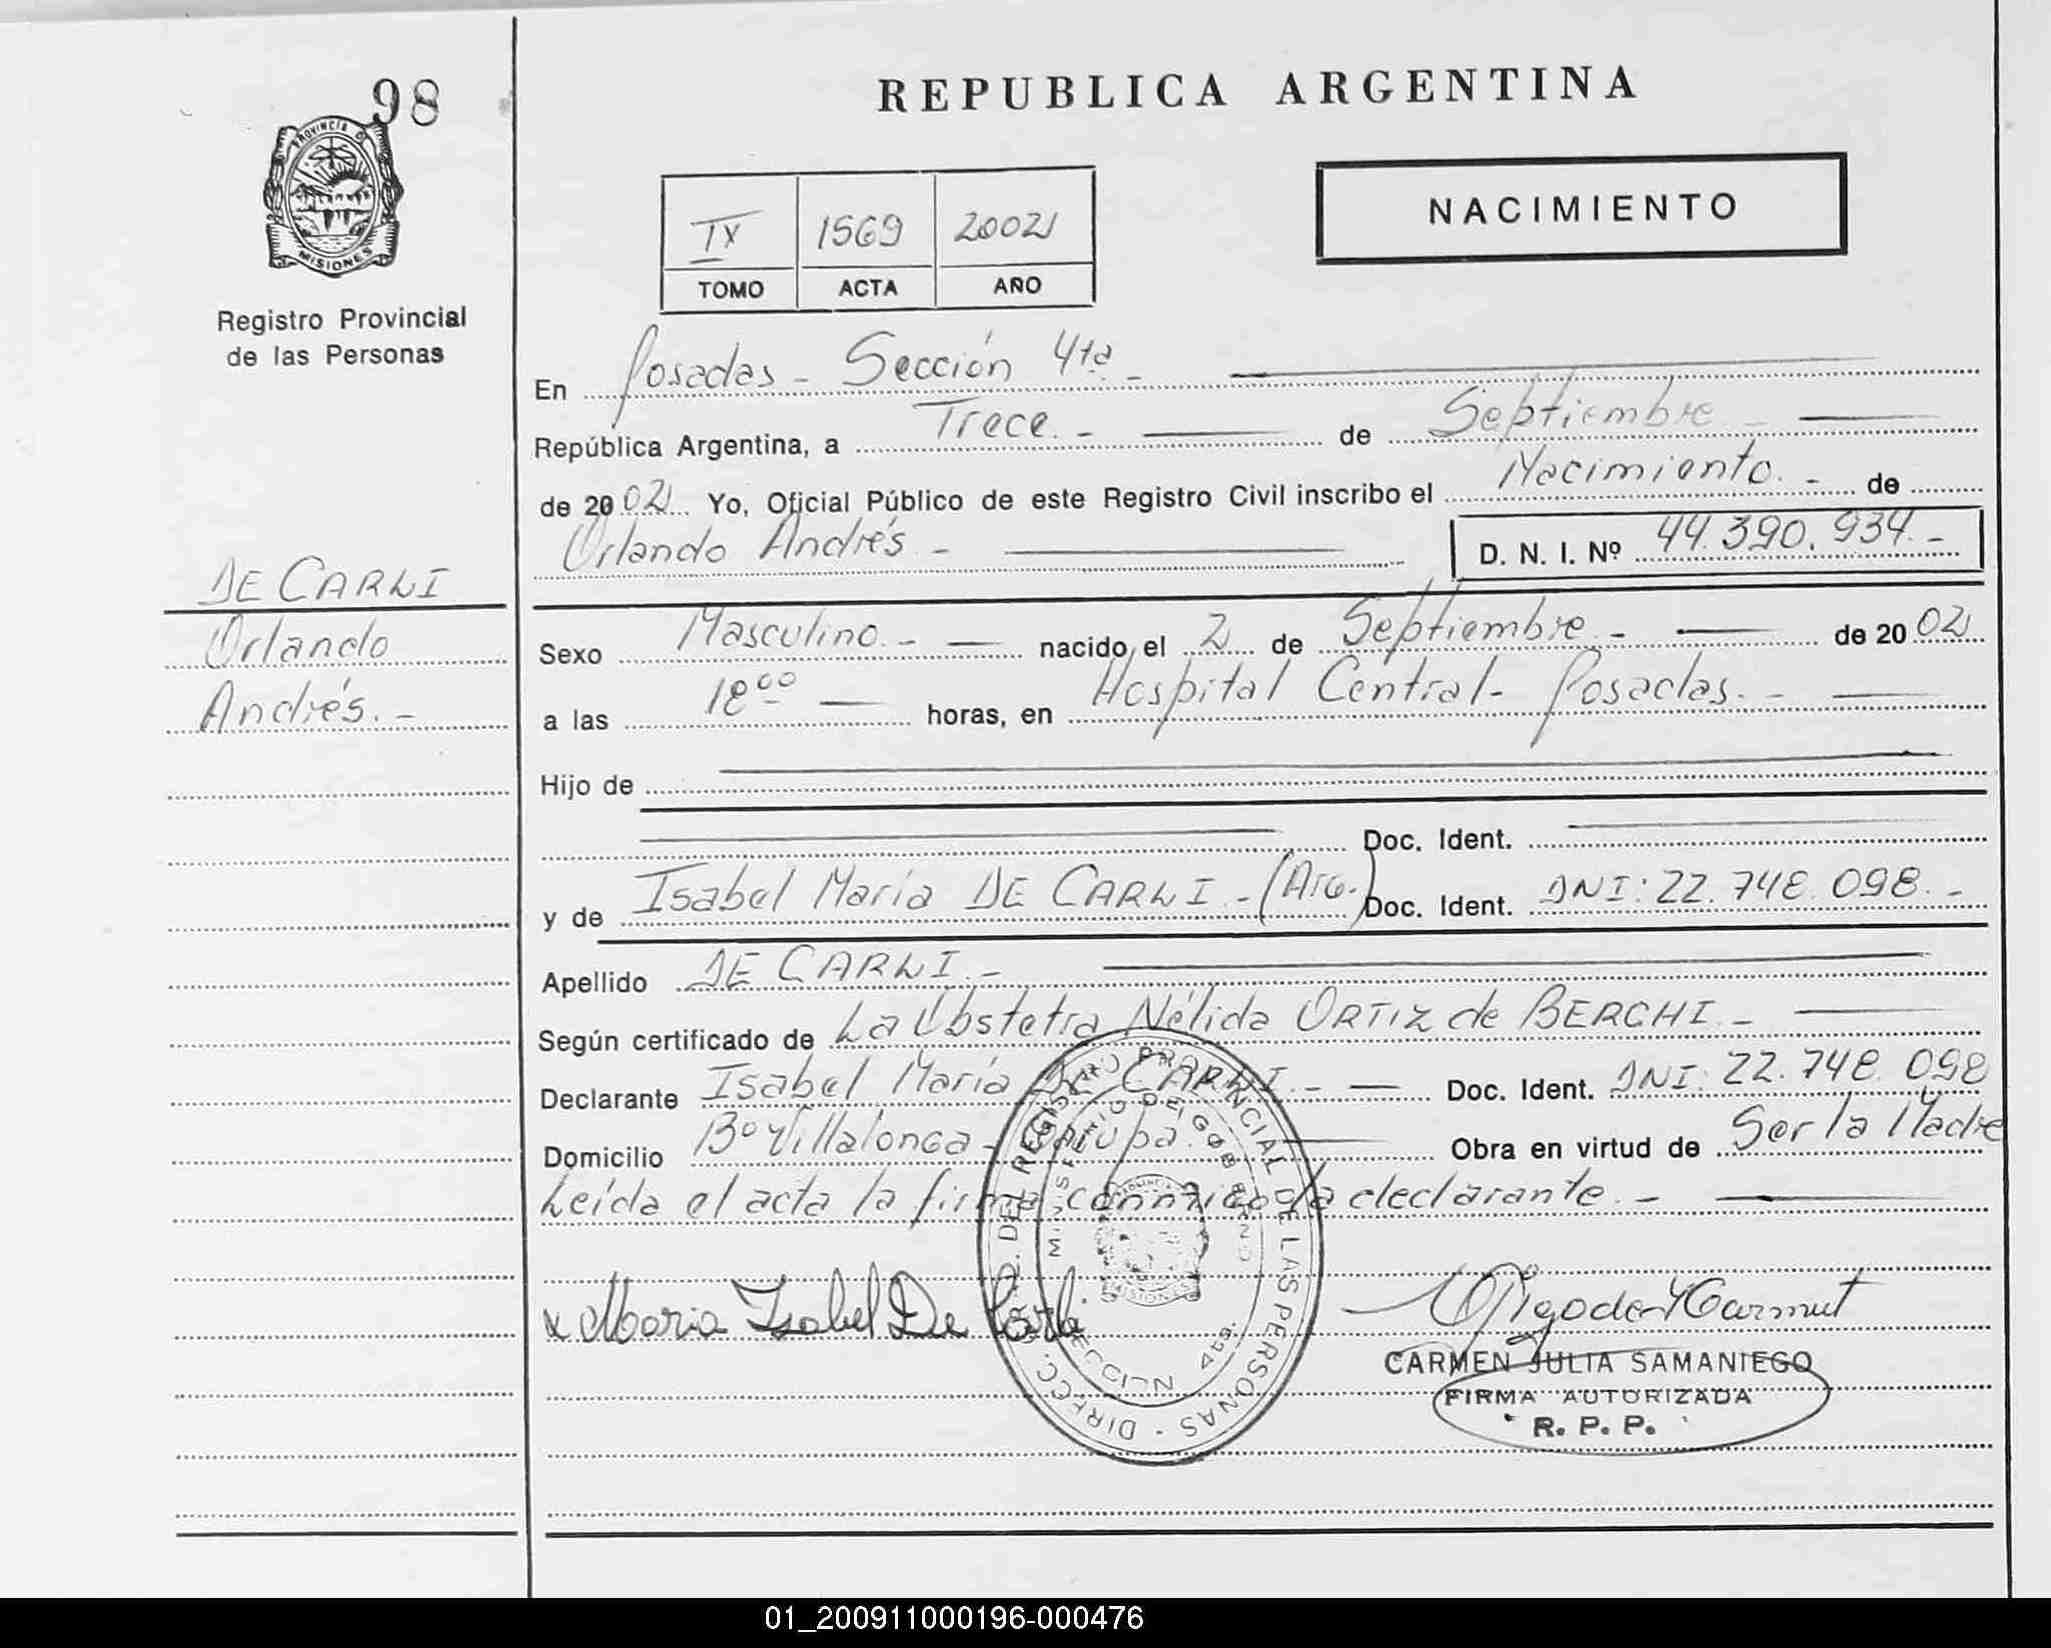 98
PROVINCIA D
MISIONES
Registro Provincial
de las Personas
DE CARLI
Orlando
Andrés.-
REPUBLICA ARGENTINA
NACIMIENTO
IX 1569 2002
TOMO ACTA AÑO
En Posadas - Sección 4ta -
República Argentina, a Trece.- de Septiembre -
de 2002 Yo, Oficial Público de este Registro Civil inscribo el Nacimiento.- de
Orlando Andrés - D. N. I. Nº 44.390.934.-
Sexo Masculino.- nacido el 2 de Septiembre.- de 2002
a las 18ºº horas, en Hospital Central - Posadas.-
Hijo de
Doc. Ident.
y de Isabel María DE CARLI.-(Arg.) Doc. Ident. DNI: 22.748.098.-
Apellido DE CARLI.-
Según certificado de La Obstetra Nélida ORTIZ de BERCHI.-
Declarante Isabel María De CARLI.- Doc. Ident. DNI: 22.748.098
Domicilio Bº Villalonga - Garupá. Obra en virtud de Ser la Madre
Leída el acta la firma conmigo la declarante.-
x Maria Isabel De Carli
DIRECC. G. DEL REGISTRO PROVINCIAL DE LAS PERSONAS -
MINISTERIO DE GOBIERNO
MISIONES
SECCION 4ta.
CARMEN JULIA SAMANIEGO
FIRMA AUTORIZADA
R. P. P.
01_200911000196-000476